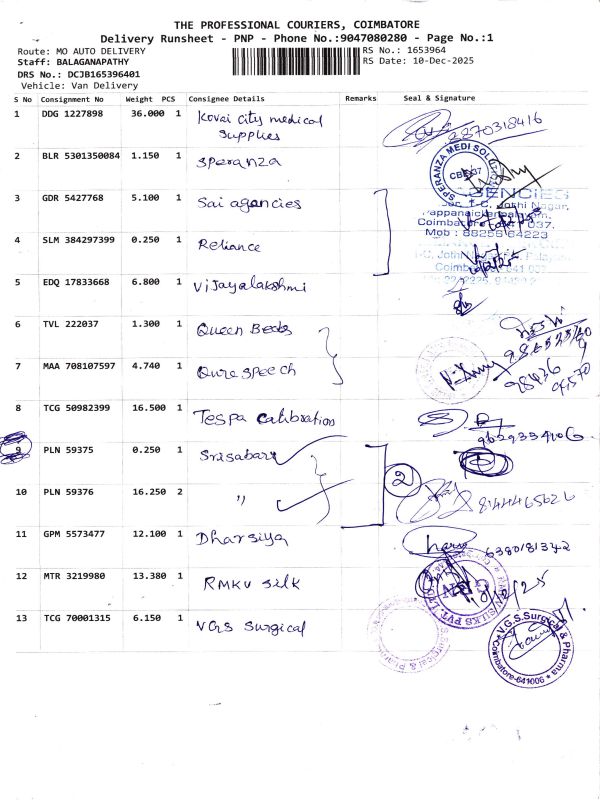 THE PROFESSIONAL COURIERS, COIMBATORE
Delivery Runsheet - PNP - Phone No.:9047080280 - Page No.:1
Route: MO AUTO DELIVERY
RS No.: 1653964
Staff: BALAGANAPATHY
RS Date: 10-Dec-2025
DRS No.: DCJB165396401
Vehicle: Van Delivery
S No Consignment No Weight PCS Consignee Details Remarks Seal & Signature
1 DDG 1227898 36.000 1 Kovai city medical
supplies
8870318416
2 BLR 5301350084 1.150 1 speranza
SPERANZA MEDI SOLUTION
3 GDR 5427768 5.100 1 Sai agencies
AGENCIES
Mob : 88256 64223
4 SLM 384297399 0.250 1 Reliance
5 EDQ 17833668 6.800 1 Vijayalakshmi
6 TVL 222037 1.300 1 Queen Beds
7 MAA 708107597 4.740 1 Qure speech
8 TCG 50982399 16.500 1 Tespa Calibration
9 PLN 59375 0.250 1 Srisabari
2
10 PLN 59376 16.250 2 "
11 GPM 5573477 12.100 1 Dharsiya
6380181342
12 MTR 3219980 13.380 1 RMKV silk
13 TCG 70001315 6.150 1 VGS Surgical
V.G.S.Surgical & Pharma
Coimbatore-641006